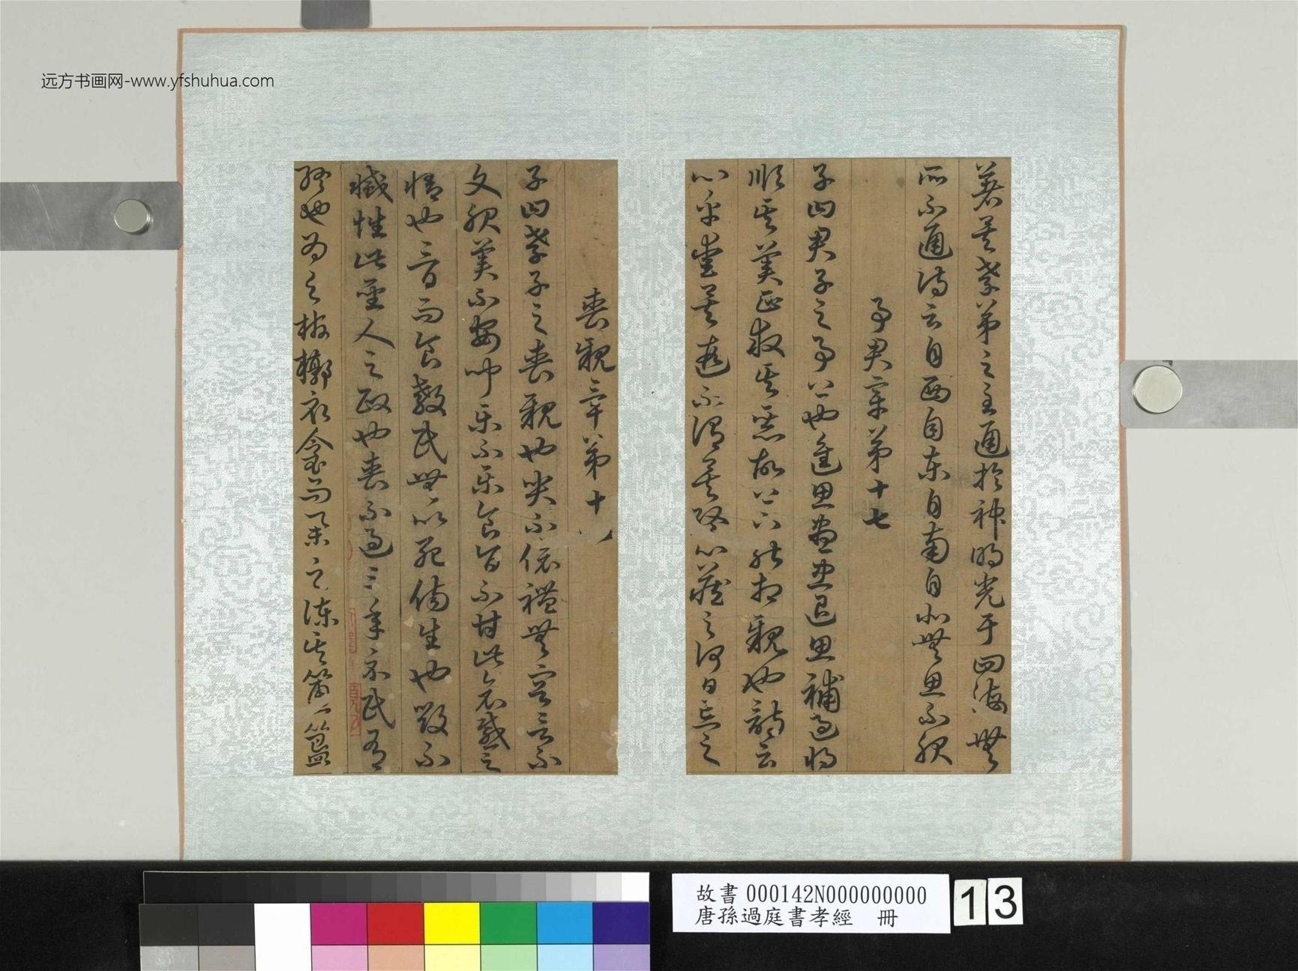 远方书画网-www.yfshuhua.com
著矣孝弟之至通於神明光于四海無
所不通詩云自西自東自南自北無思不服
事君章第十七
子曰君子之事上也進思盡忠退思補過將
順其美匡救其惡故上下能相親也詩云
心乎愛矣遐不謂矣心藏之何日忘之
喪親章第十八
子曰孝子之喪親也哭不偯禮無容言不
文服美不安聞樂不樂食旨不甘此哀慼之
情也三日而食教民無以死傷生也毀不
滅性此聖人之政也喪不過三年示民有
終也為之棺槨衣衾而舉之陳其簠簋
故書 000142N000000000
唐孫過庭書孝經 冊
13